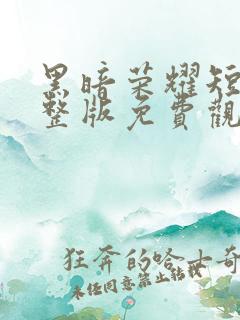 黑暗荣耀短
整版免費觀
狂奔的哈士奇
未经同意禁止转载